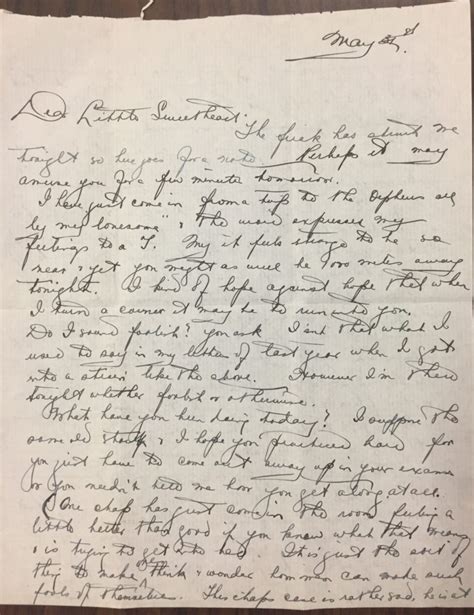 May 31st
Dear Little Sweetheart:
The has struck me
tonight so here goes for a note. Perhaps it may
amuse you for a few minutes tomorrow.
I have just come in from a trip to the Orpheum all
by my lonesome" & the word expresses my
feelings to a T. My it feels strange to be so
near & yet you might as well be 7000 miles away
tonight. I kind of hope against hope that when
I turn a corner it may be to run into you.
Do I sound foolish? you ask Isn't that what I
used to say in my letters of last year when I got
into a strain like the above. However I'm there
tonight whether foolish or otherwise.
What have you been doing today? I suppose the
same old & I hope you practiced hard for
you just have to come out away up in your exams
or you needn't tell me how you get along at all.
One chap has just come in the room feeling a
little better than good if you know what that means
& is trying to get into bed. It is just the sort of
thing to make think & wonder how men can make such
fools of themselves. This chaps case is rather sad, he is at